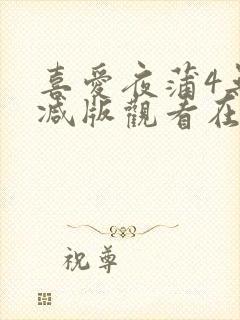 喜愛夜蒲4
减版觀看在
祝尊